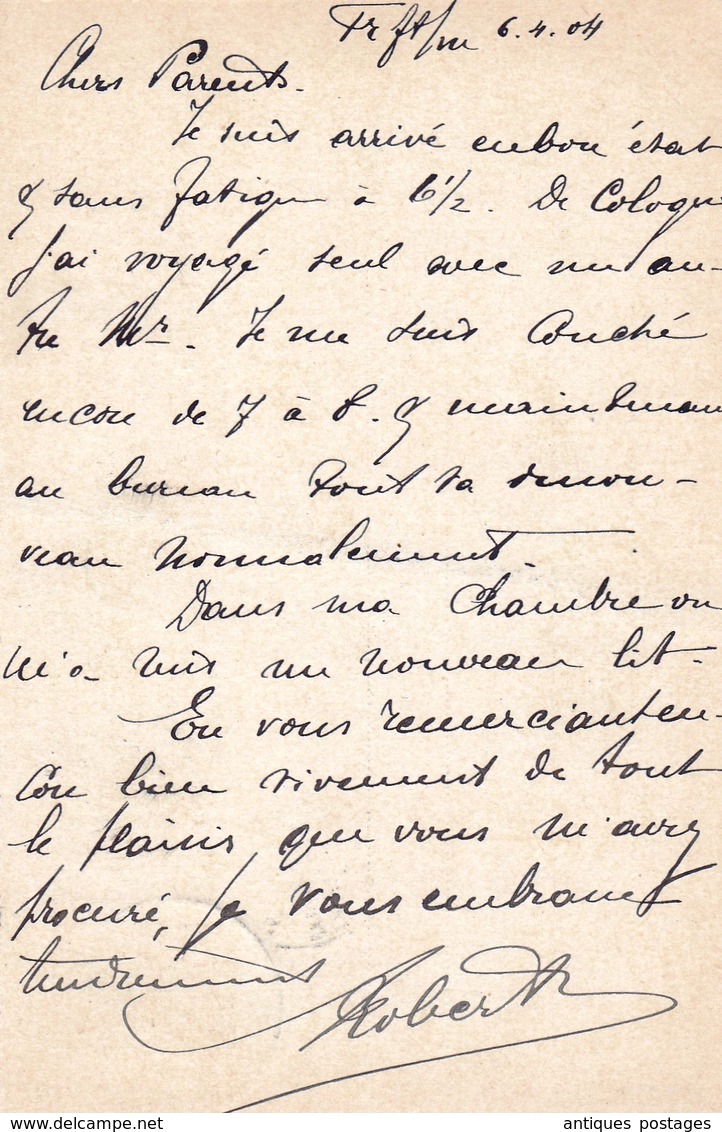 Fr ft/m 6.4.04
Chers Parents.
Je suis arrivé en bon état
& sans fatigue à 6 1/2. De Cologne
j'ai voyagé seul avec un au-
tre Mr. Je me suis couché
encore de 7 à 8. & maintenant
au bureau tout va de nou-
veau normalement.
Dans ma chambre on
m'a mis un nouveau lit.
En vous remerciant en-
core bien vivement de tout
le plaisir que vous m'avez
procuré, je vous embrasse
tendrement
Robert
antiques postages